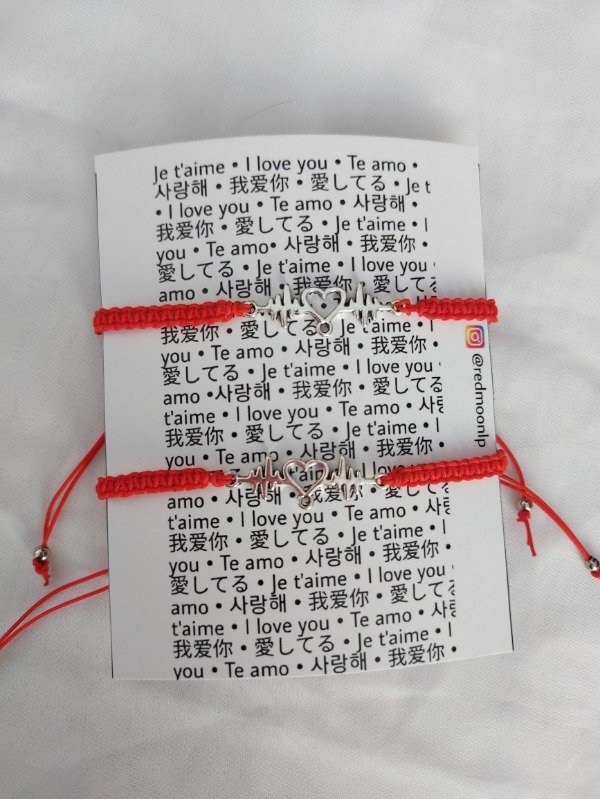 Je t'aime • I love you • Te amo •
사랑해 • 我爱你 • 愛してる • Je t
• I love you • Te amo • 사랑해 •
我爱你 • 愛してる • Je t'aime • I
you • Te amo• 사랑해 • 我爱你 •
愛してる • Je t'aime • I love you •
amo • 사랑해 • 我爱你 •
我爱你 • 愛してる Je t'aime •
you • Te amo • 사랑해 • 我爱你 •
愛してる • Je t'aime • I love you
amo •사랑해 • 我爱你 • 愛してる
t'aime • I love you • Te amo • 사랑
我爱你 • 愛してる • Je t'aime • I
you • Te amo • 사랑해 • 我爱你
t'aime • I love you
amo • 사랑해 • 我爱你 •
t'aime • I love you • Te amo • 사랑
我爱你 • 愛してる • Je t'aime • I
you • Te amo • 사랑해 • 我爱你 •
愛してる • Je t'aime • I love you
amo • 사랑해 • 我爱你 • 愛してる
t'aime • I love you • Te amo • 사랑
我爱你 • 愛してる • Je t'aime • I
you • Te amo • 사랑해 • 我爱你 •
@redmoonlp